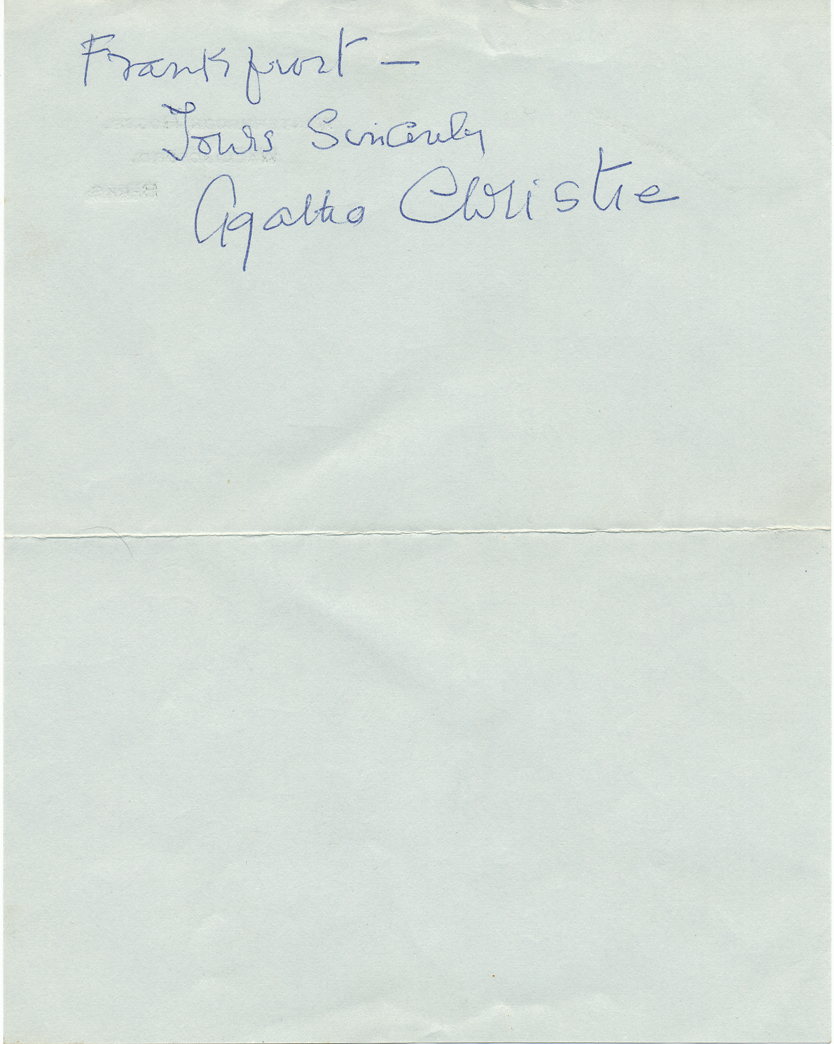 Frankfurt —
Yours Sincerely
Agatha Christie